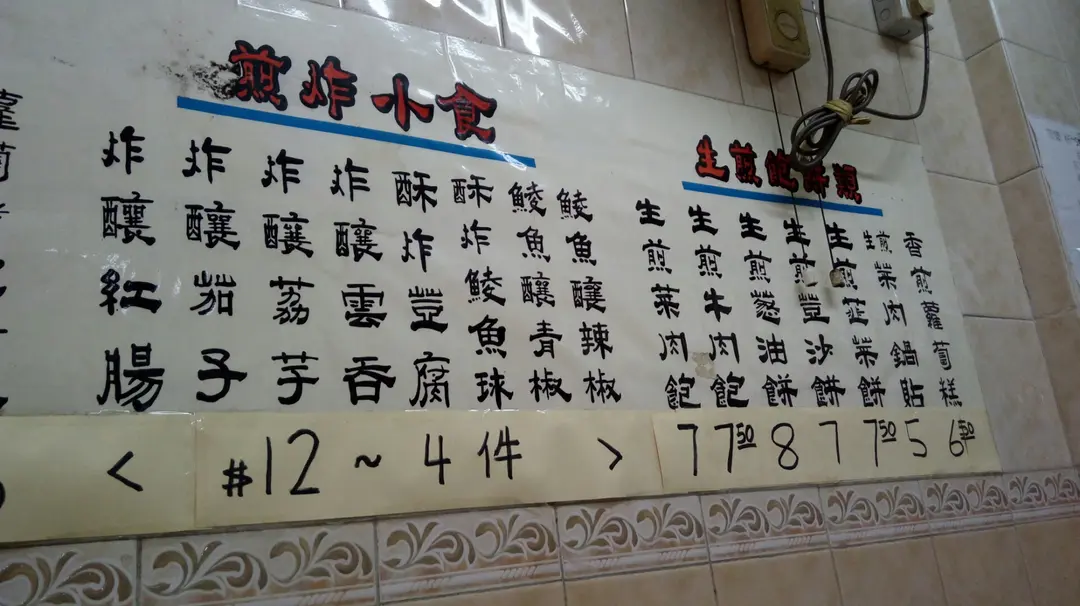 煎炸小食
炸釀紅腸
炸釀茄子
炸釀荔芋
炸釀雲吞
酥炸荳腐
酥炸鯪魚球
鯪魚釀青椒
鯪魚釀辣椒
< $12 ~ 4件 >
生煎飽餅類
生煎菜肉飽
生煎牛肉飽
生煎葱油餅
生煎荳沙餅
生煎韮菜餅
生煎菜肉鍋貼
香煎蘿蔔糕
7 750 8 7 750 5 650